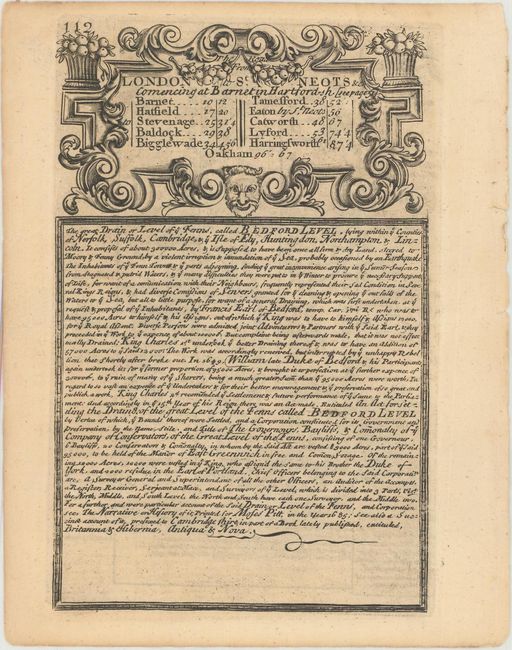 112
The Road from
LONDON to St. NEOTS &c
Comencing at Barnet in Hartford-sh. (see page
Barnet 10 12
Hatfield 17 20
Stevenage 25 31 4
Baldock 29 38
Bigglewade 34 45 6
Tamesford 38 52
Eaton by St. Neots 56
Catworth 48 67
Lyford 53 74 4
Harringsworth 87 4
Oakham 96 67
The great Drain or Level of ye Fenns, called BEDFORD LEVEL, lying within ye Counties
of Norfolk, Suffolk, Cambridge, & ye Isle of Ely, Huntingdon, Northampton, & Lin-
coln. It consists of about 300000 Acres, & is supposed to have been once all firm & dry Land, turned to
Moory & Fenny Ground by a violent irruption & inundation of ye Sea, probably occasioned by an Earthquake
The Inhabitants of ye Fenn Towns & ye parts adjoyning, finding ye great inconvenience arising in ye Sumer Season
from stagnated & putrid Waters, & ye many difficulties they were put to in ye Winter to procure ye necessary Support
of Life, for want of a communication with their Neighbour, frequently represented their sad Condition in seve
ral Kings Reigns, & had divers Comissions of Sewers granted for ye cleaning & opening ye outfalls of the
Waters to ye Sea, but all to little purpose, for want of a general Draining, which was first undertaken at ye
request & proposal of ye Inhabitants, by Francis Earl of Bedford, temp. Car. who was to
have 95000 Acres to himself & his assigns, out of which ye King was to have to himself & assigns 12000,
for ye Royal Assent. Divers Persons were admitted joint Adventurers & Partners with ye said Earl, & they
proceeded in ye Work to ye expence of about 100000 £. But complaint being afterwards made, that it was not effec
tually Drained; King Charles 1st undertook ye better Draining thereof, & was to have an Additional
57000 Acres to ye said 12000 & this Work was accordingly renewed, but interrupted by ye unhappy Rebel
lion that shortly after broke out. In 1649. William late Duke of Bedford & his Participants
again undertook its for ye former proportion of 95000 Acres, & brought it to perfection at ye further expence of
300000 £, to ye ruin of many of ye Sharers, being a much greater sum than ye 95000 Acres were worth. In
regard to so vast an expence of ye Undertakers & for their better encouragement & ye preservation of so great and
publick a work, King Charles 2d recomitted ye Settlement & future performance of ye same to the Parlia-
ment and accordingly in ye 15th Year of his Reign, there was an Act made, Entituled An Act for Set-
ling the Draining of the great Level of the Fenns called BEDFORD LEVEL
by Vertue of which, ye Bounds thereof were Settled, and a Corporation constituted for its Government and
preservation, by the Name, Stile, and Title of The Governours, Bayliffs, & Comonalty of ye
Company of Conservators, of the Great Level of the Fenns, consisting of one Governour
6 Bayliffs, 20 Conservators & Comonalty, in whom by the said Act are vested 83000 Acres, part of ye said
95000, to be held of the Manor of East Greenwich in free and Comon Socage. Of the remain-
ing 12000 Acres, 10000 were vested in ye King, who assign'd the same to his Brother the Duke of
York, and 2000 residue, in the Earl of Portland. Chief Officers belonging to the said Corporati
are. A Surveyor General and Superintendant of all the other Officers, an Auditor of the Accompts,
a Register, Receiver, Serjeant at Mace, and Surveyors of ye Level, which is divided into 3 Parts, Vizt
the North, Middle, and South Level, the North and South have each one Surveyor, and the Middle, two.
For a further, and more particular account of the said Drain or Level of the Fenns, and Corporation
see, The Narrative or History of it, Printed for Moses Pitt, in the Year 1685; See also a Suc-
cinct account of it, prefixed to Cambridge shire in part of a Book lately published, entituled,
Britannia & Hibernia, Antiqua & Nova.